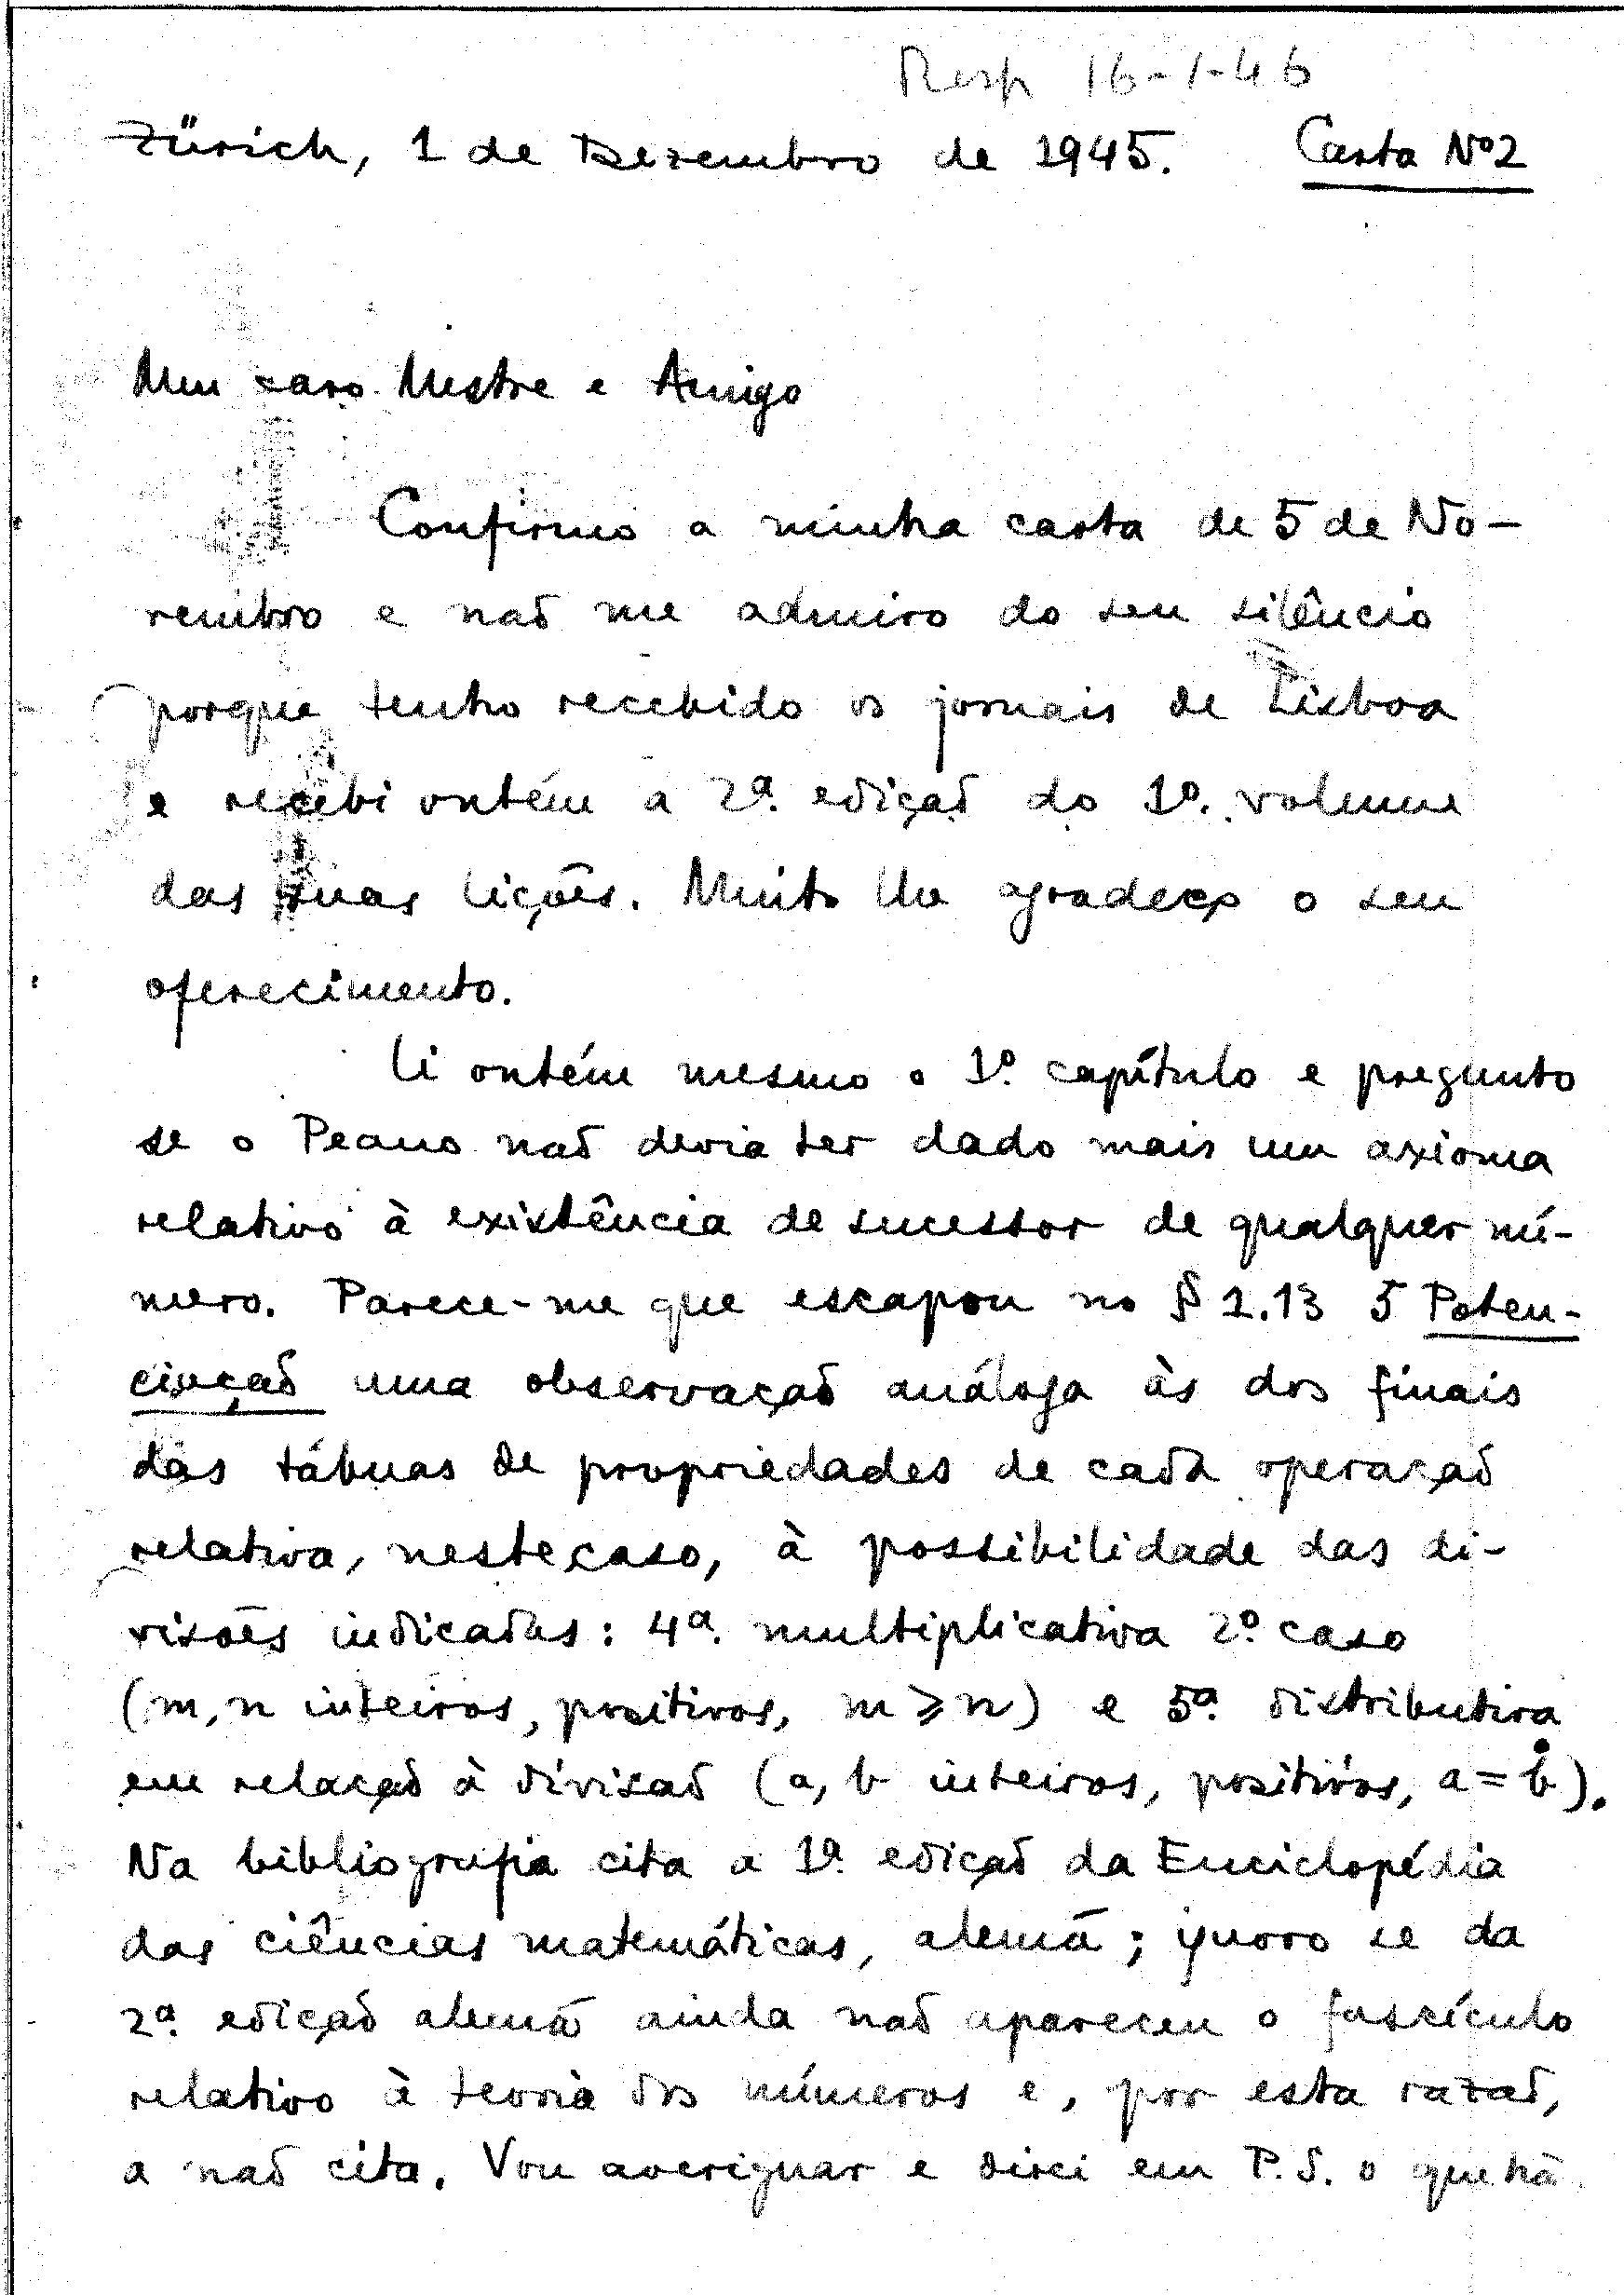 Resp 16-1-46
Zürich, 1 de Dezembro de 1945. Carta Nº2
Meu caro Mestre e Amigo
Confirmo a minha carta de 5 de No-
vembro e não me admiro do seu silêncio
porque tenho recebido os jornais de Lisboa
e recebi ontém a 2ª. edição do 1º. volume
das suas lições. Muito lhe agradeço o seu
oferecimento.
Li ontém mesmo o 1º. capítulo e pregunto
se o Peano não devia ter dado mais um axioma
relativo à existência de sucessor de qualquer nú-
mero. Parece-me que escapou no § 1.13 5 Poten-
ciação uma observação análoga às dos finais
das tábuas de propriedades de cada operação
relativa, neste caso, à possibilidade das di-
visões indicadas: 4ª. multiplicativa 2º. caso
(m, n inteiros, positivos, m ⩾ n) e 5ª. distributiva
em relação à divisão (a, b inteiros, positivos, a = ḃ).
Na bibliografia cita a 1ª. edição da Enciclopédia
das ciências matemáticas, alemã; ignoro se da
2ª. edição alemã ainda não apareceu o fascículo
relativo à teoria dos números e, por esta razão,
a não cita. Vou averiguar e direi em P.S. o que há.